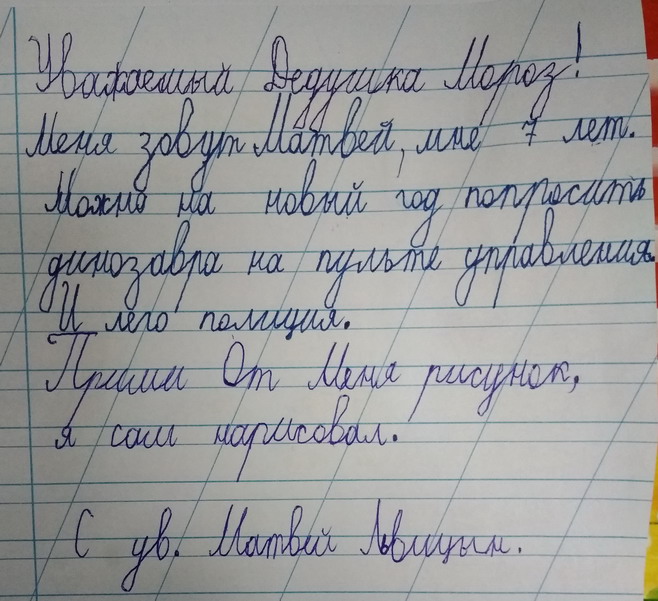 Уважаемый Дедушка Мороз!
Меня зовут Матвей, мне 7 лет.
Можно на новый год попросить
динозавра на пульте управления.
И лего полиция.
Прими От Меня рисунок,
я сам нарисовал.
С ув. Матвей Львицын.